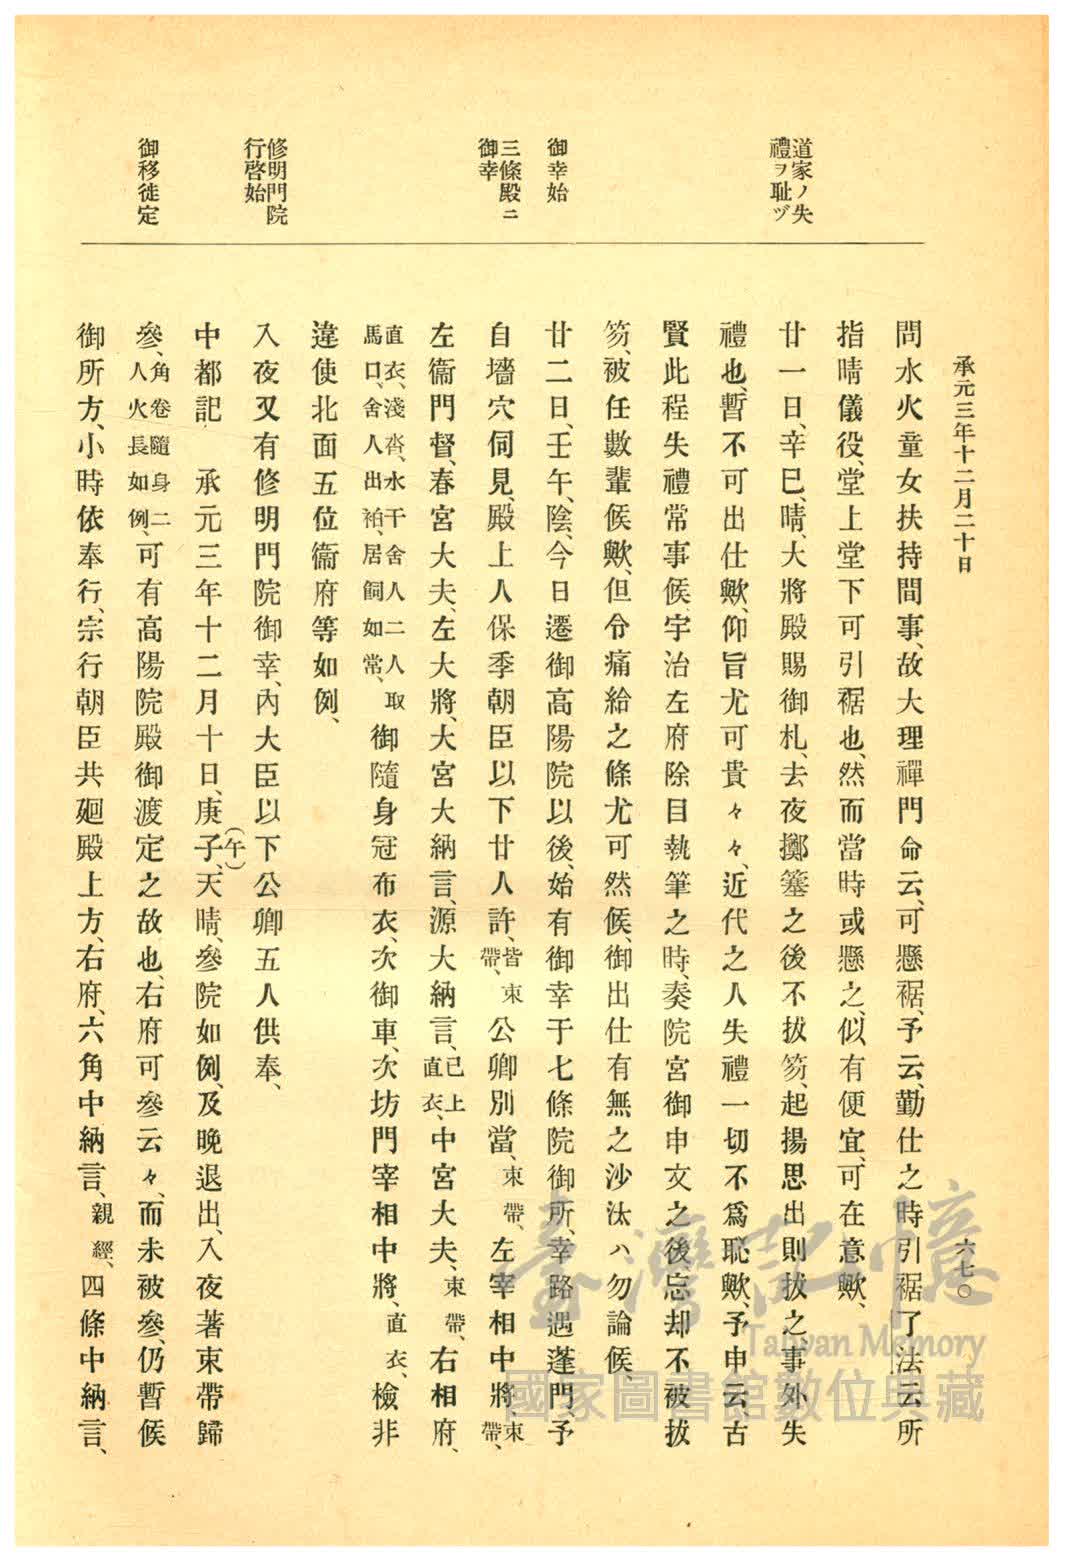 承元三年十二月二十日
六七〇
道家ノ失
禮ヲ耻ヅ
御幸始
三條殿ニ
御幸
修明門院
行啓始
御移徙定
問水火童女扶持間事、故大理禪門命云、可懸裾、予云、勤仕之時引裾了、法云所
指晴儀役、堂上堂下可引裾也、然而當時或懸之、似有便宜、可在意歟、
廿一日、辛巳、晴、大將殿賜御札、去夜擲簺之後不拔笏、起揚思出則拔之、事外失
禮也、暫不可出仕歟、仰旨尤可貴々々、近代之人失禮一切不爲恥歟、予申云、古
賢此程失禮常事候、宇治左府除目執筆之時、奏院宮御申文之後、忘却不被拔
笏、被任數輩候歟、但令痛給之條尤可然候、御出仕有無之沙汰ハ勿論候、
廿二日、壬午、陰、今日遷御高陽院以後、始有御幸于七條院御所、幸路遇蓬門、予
自墻穴伺見、殿上人保季朝臣以下廿人許、皆束帶、公卿別當、束帶、左宰相中將、束帶、
左衞門督、春宮大夫、左大將、大宮大納言、源大納言、已上直衣、中宮大夫、束帶、右相府、
直衣、淺沓、水干舍人二人取馬口、舍人出袙、居飼如常、御隨身冠布衣、次御車、次坊門宰相中將、直衣、檢非
違使北面五位衞府等如例、
入夜又有修明門院御幸、內大臣以下公卿五人供奉、
中都記 承元三年十二月十日、庚子(午)、天晴、參院如例、及晚退出、入夜著束帶歸
參、角卷隨身二人火長如例、可有高陽院殿御渡定之故也、右府可參云々、而未被參、仍暫候
御所方、小時依奉行、宗行朝臣共廻殿上方、右府、六角中納言、親經、四條中納言、
臺灣記憶
Taiwan Memory
國家圖書館數位典藏